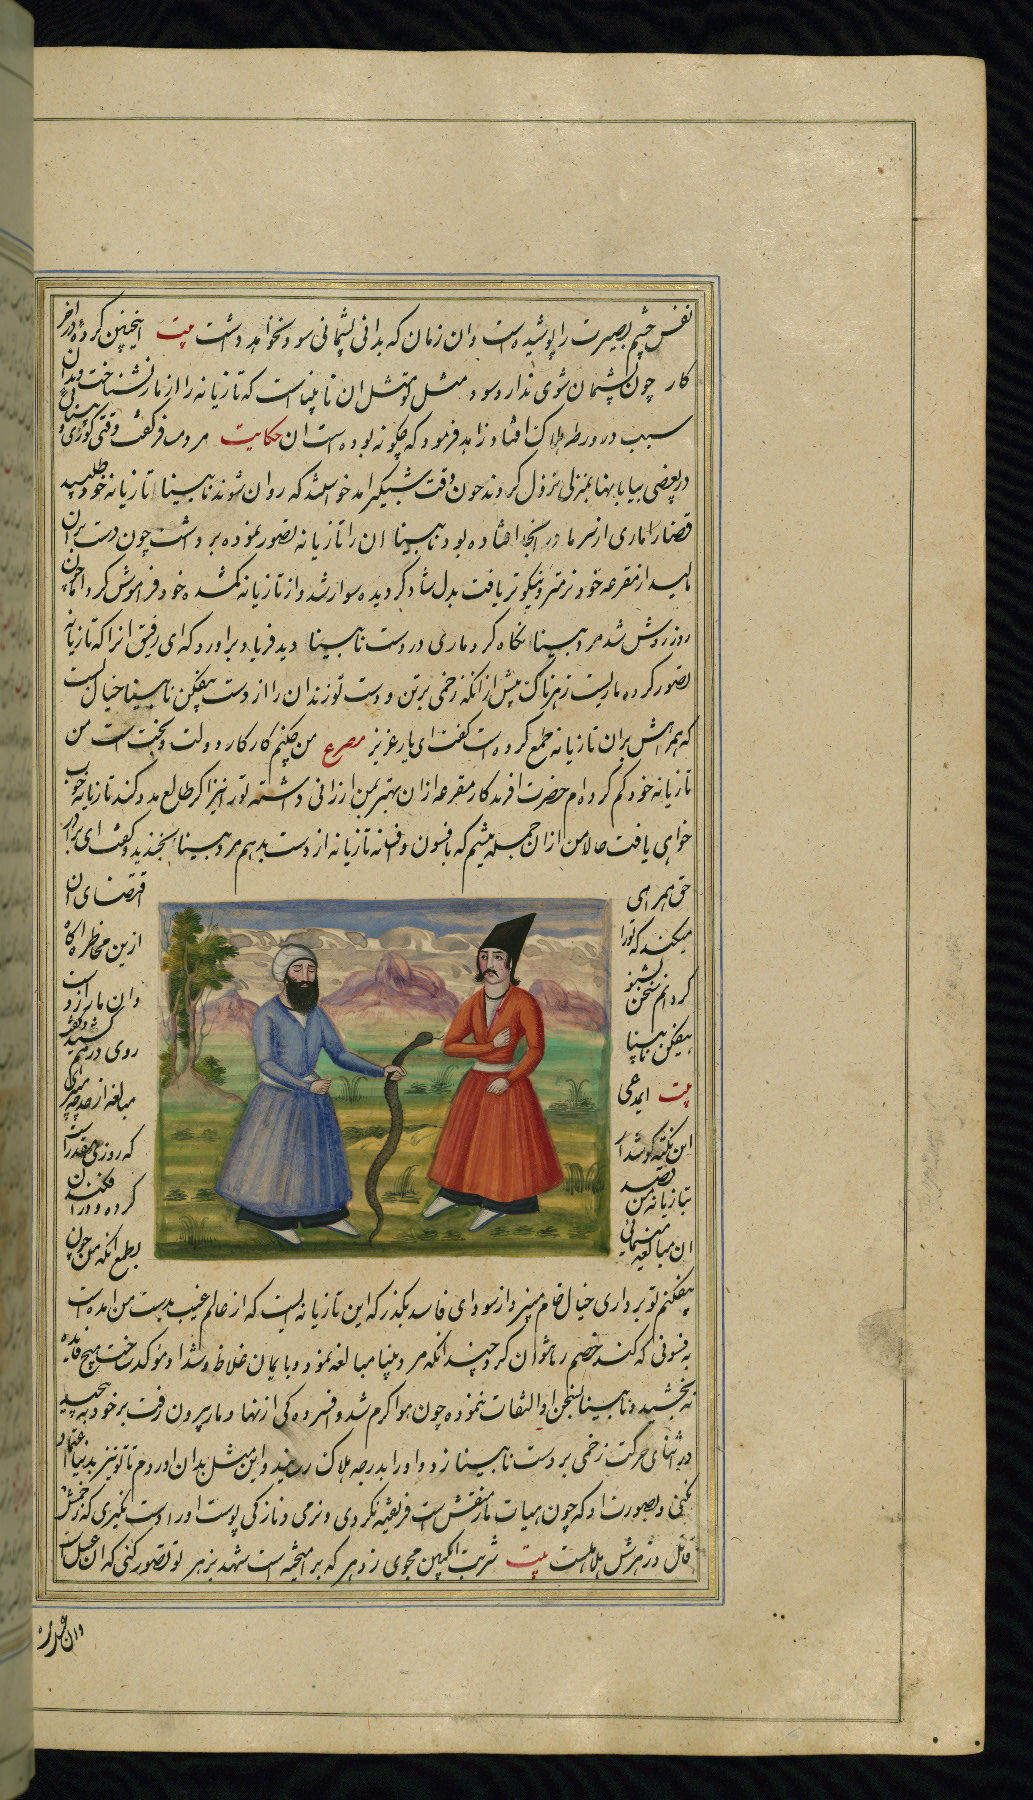 نفس چشم بصیرت را پوشیده است وان زمان که بدانی پشیمانی سود نخواهد داشت بیت اینچنین کرده در آخر
کار چون پشیمان شوی ندارد سود مثل تو مثل ان نابیناست که تازیانه را از مار نشناخت وبدان
سبب در ورطه هلاک افتاد زاهد فرمود که چگونه بوده است ان حکایت مردمسافر گفت وقتی کوری و بینائی
در بعضی بیابانها بمنزلی نزول کردند چون وقت شبگیر امد خواستند که روان شوند نابینا تازیانه خود طلبید
قضا را ماری از سرما در انجا افتاده بود نابینا ان را تازیانه تصور نموده برداشت چون دست بران
مالید از مقرعه خود نرمتر و نیکوتر یافت بدل شاد گردیده سوار شد و از تازیانه کمشده خود فراموش کرد اما چون
روز روشن شد مرد بینا نگاه کرد ماری در دست نابینا دید فریاد براورد که ای رفیق انرا که تازیانه
تصور کرده ماریست زهرناک پیش از انکه زخمی بر تن و دست تو زند ان را از دست بیفکن نابینا خیال بست
که همراهش بران تازیانه طمع کرده است گفت ای یار عزیز مصرع من چکنم کار کار دولت و بختست من
تازیانه خود کم کرده ام حضرت افریدگار مقرعه ازان بهتر بمن ارزانی داشته تو را نیز اگر طالع مدد کند تازیانه خوب
خواهی یافت حالا من ازان جمله نیستم که بافسون و فسانه تازیانه از دست بدهم مرد بینا بخندید و گفت ای برادر
حق همراهی اقتضای ان
میکند که تورا ازین مخاطره اگاه
کردانم سخن بشنو وان مار از دست
بیفکن نابینا روی درهم کشید و گفت
بیت ایمدعی مبالغه از حد چه میبری
این نکته گوش دار که روزی مقدر است
بتازیانه من قصد کرده و در افکندن
ان مبالغه مینمائی بطمع انکه من چون
بیفکنم تو برداری خیال خام مپز و از سودای فاسد بگذر که این تازیانه ایست که از عالم غیب بدست من امده است
به فسونی که کند خصم رها نتوان کرد چندانکه مرد بینا مبالغه نمود و بایمان غلاظ و شداد موکد ساخت هیچ فایده
نه بخشید و نابینا بسخن او التفات ننموده چون هوا گرم شد و افسردگی از نهاد مار بیرون رفت بر خود به پیچید
در اثنای حرکت زخمی بر دست نابینا زد و او را بدرجه هلاک رسانید و این مثل بدان اوردم تا تو نیز بدنیا اعتماد
نکنی و بصورت او که چون هیات مار منقش است فریفته نگردی و نرمی و نازکی پوست او را دوست نگیری که زخمش
قاتل و زهرش هلاهلست بیت شربت انگبین مجوی ز دهر که بر امیخته است شهد بزهر تو تصور کنی که ان عسل است
وان عسل نه